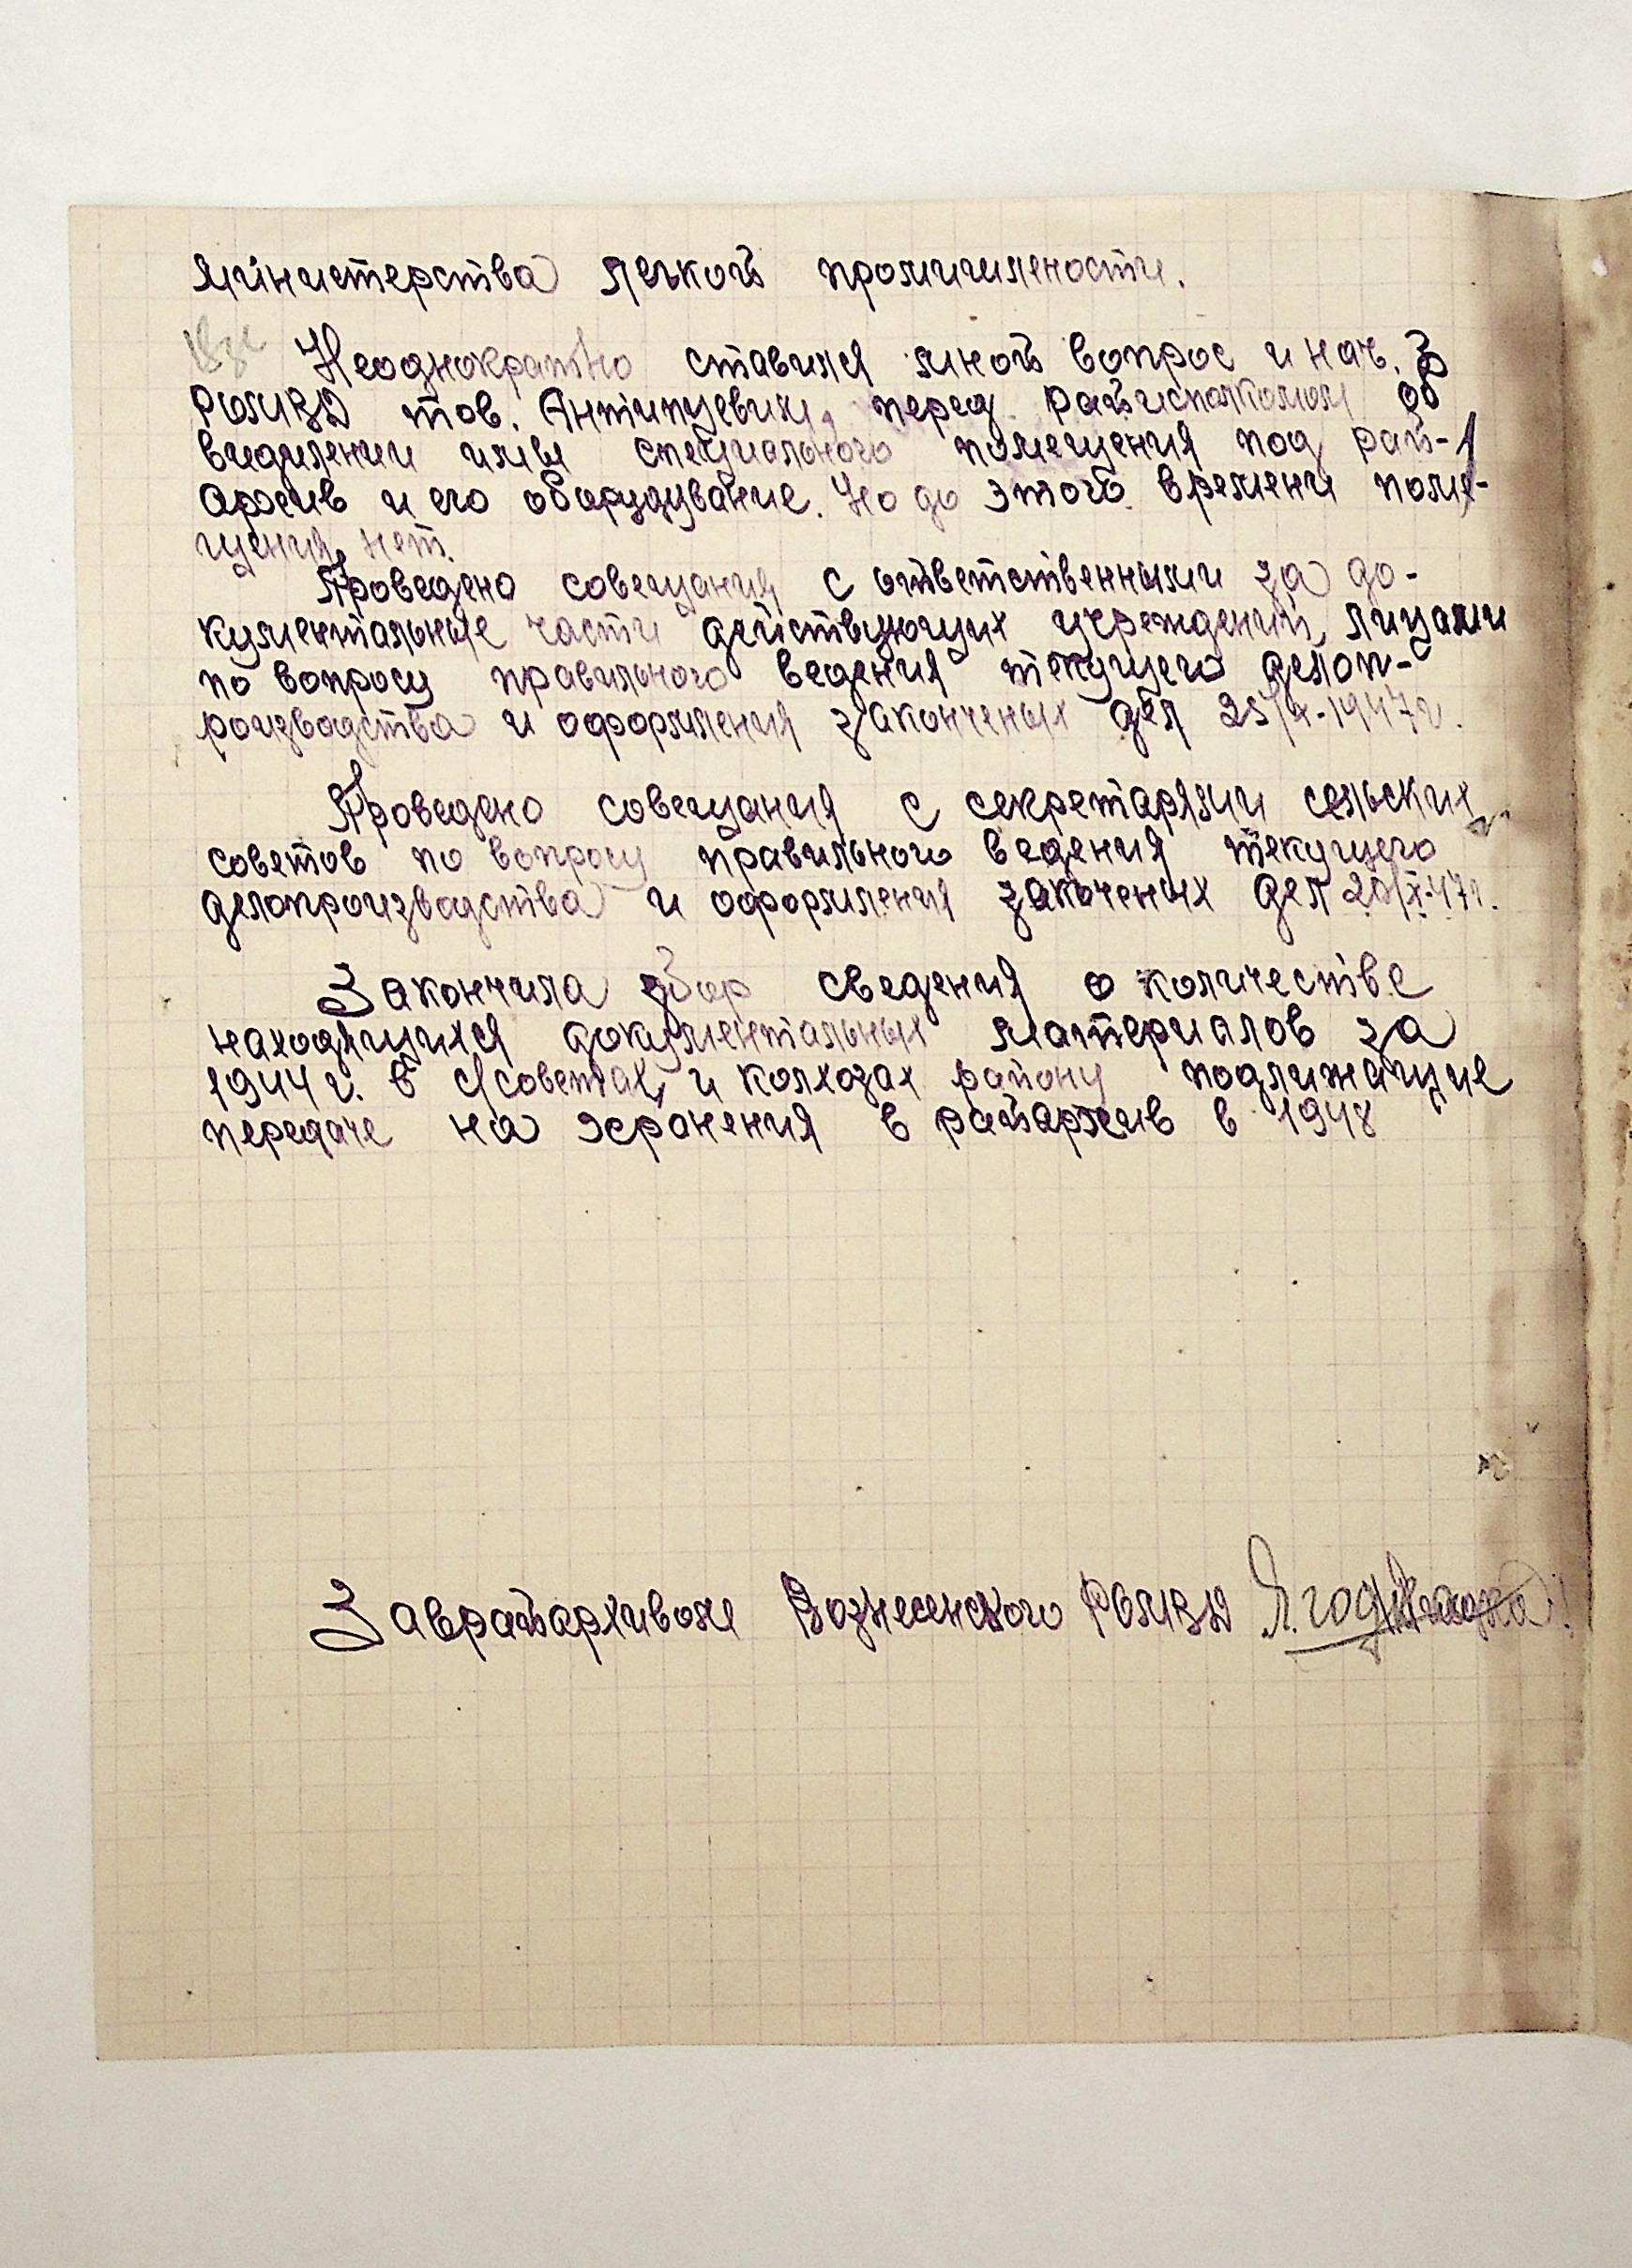 министерства легкой промишлености.
Неоднократно ставился мной вопрос и нач.
РОМВД тов. Антипцевим, перед райисполкомом об
виделении ими специального помещения под рай-
архив и его оборудувание. Но до этого времени поме-
щения нет.
Проведено совещания с ответственными за до-
кументальные части действующих учреждений, лицами
по вопросу правильного ведения текущего делоп-
роизводства и оформления законченых дел 1947г.
Проведено совещания с секретарями сельских
советов по вопросу правильного ведения текущего
делопроизводства и оформления закоченых дел 20/X-47г.
Закончила збор сведения о количестве
находящихся документальных материалов за
1944 г. в с/советах и колхозах району подлижащие
передаче на хронения в райархив в 1948
Заврайархивом Вознесенского РОМВД